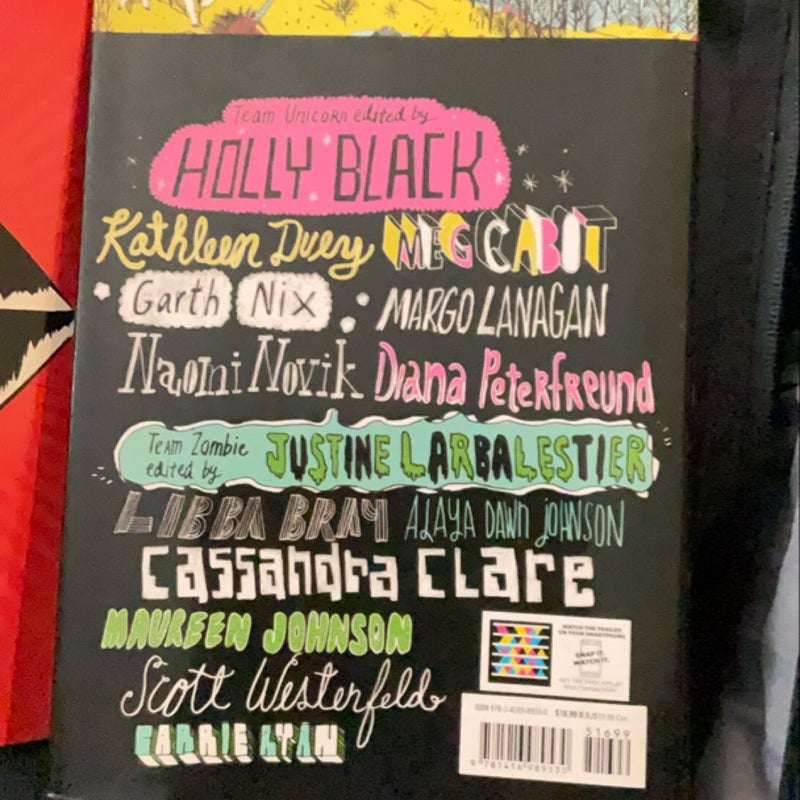 Team Unicorn edited by
HOLLY BLACK
Kathleen Duey MEG CABOT
Garth Nix MARGO LANAGAN
Naomi Novik Diana Peterfreund
Team Zombie
edited by JUSTINE LARBALESTIER
LIBBA BRAY ALAYA DAWN JOHNSON
Cassandra Clare
MAUREEN JOHNSON
Scott Westerfeld
CARRIE RYAN
WATCH THE TRAILER
ON YOUR SMARTPHONE.
SNAP IT.
WATCH IT.
GET THE FREE APP AT
51699
9 781416 989530